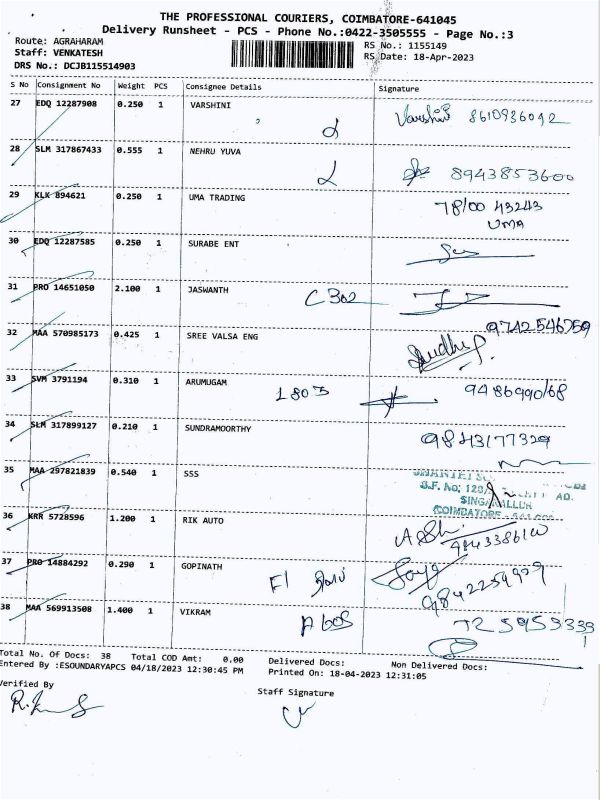 THE PROFESSIONAL COURIERS, COIMBATORE-641045
Delivery Runsheet - PCS - Phone No.:0422-3505555 - Page No.:3
Route: AGRAHARAM
RS No.: 1155149
Staff: VENKATESH
RS Date: 18-Apr-2023
DRS No.: DCJB115514903
S No Consignment No Weight PCS Consignee Details Signature
27 EDQ 12287908 0.250 1 VARSHINI Varshini 8610936092
28 SLM 317867433 0.555 1 NEHRU YUVA 8943853600
29 KLK 894621 0.250 1 UMA TRADING 78100 43243
UMA
30 EDQ 12287585 0.250 1 SURABE ENT
31 PRO 14651050 2.100 1 JASWANTH C 302
9742546759
32 MAA 570985173 0.425 1 SREE VALSA ENG
33 SVM 3791194 0.310 1 ARUMUGAM 180 9486990168
34 SLM 317899127 0.210 1 SUNDRAMOORTHY 9843177329
35 MAA 297821839 0.540 1 SSS
S.F. No: RD.
SINGANALLUR
COIMBATORE
36 KRR 5728596 1.200 1 RIK AUTO
37 PRO 14884292 0.290 1 GOPINATH F1
38 MAA 569913508 1.400 1 VIKRAM 7259593339
Total No. Of Docs: 38 Total COD Amt: 0.00 Delivered Docs: Non Delivered Docs:
Entered By :ESOUNDARYAPCS 04/18/2023 12:30:45 PM Printed On: 18-04-2023 12:31:05
Verified By
Staff Signature